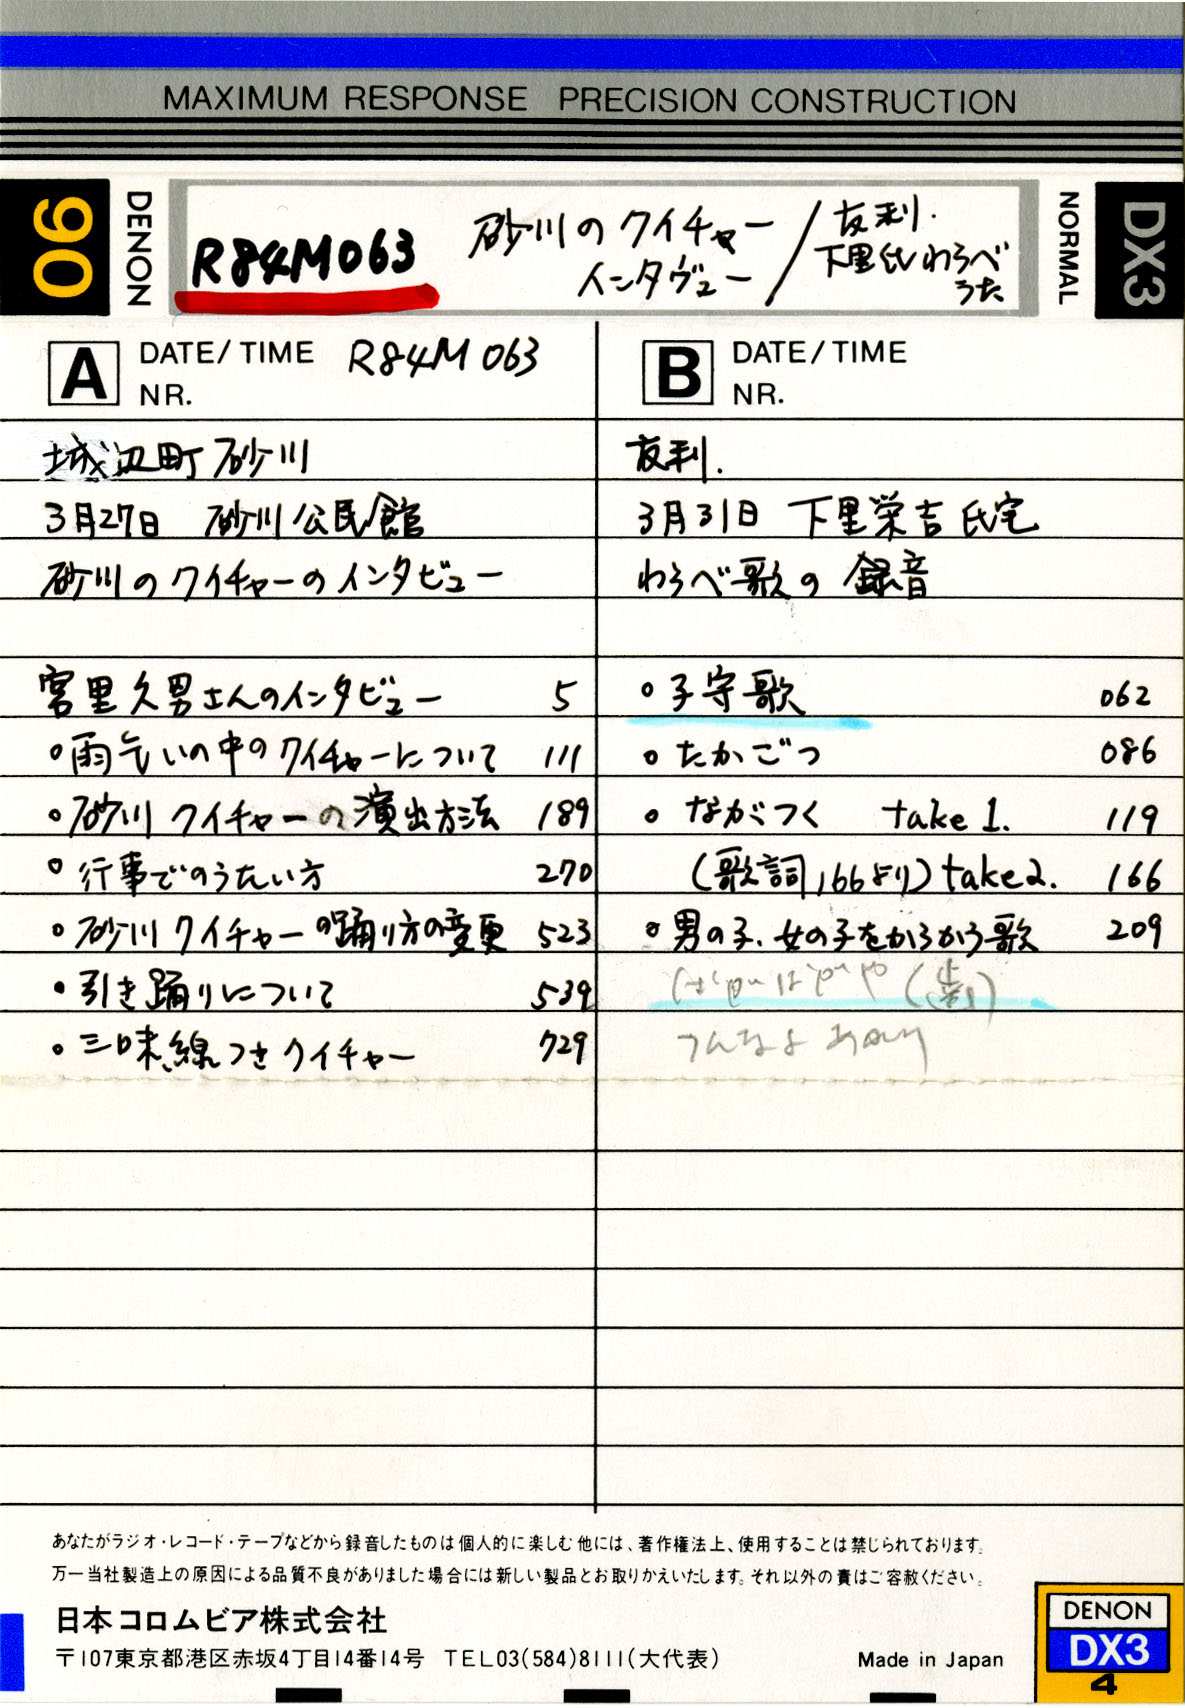 MAXIMUM RESPONSE PRECISION CONSTRUCTION
90
DENON
R84M063
砂川のクイチャー
インタヴュー
/
友利.
下里氏わらべ
うた
NORMAL
DX3
A DATE/TIME R84M063
NR.
城辺町 砂川
3月27日 砂川公民館
砂川のクイチャーのインタビュー
宮里久男さんのインタビュー 5
○雨乞いの中のクイチャーについて 111
○砂川クイチャーの演出方法 189
○行事でのうたい方 270
○砂川クイチャーの踊り方の変更 523
○引き踊りについて 539
○三味線つきクイチャー 729
B DATE/TIME
NR.
友利.
3月31日 下里栄吉氏宅
わらべ歌の録音
○子守歌 062
○たかごつ 086
○ながつく take 1. 119
(歌詞166より) take 2. 166
○男の子、女の子をからかう歌 209
つんなよ
あなたがラジオ・レコード・テープなどから録音したものは個人的に楽しむ他には、著作権法上、使用することは禁じられております。
万一当社製造上の原因による品質不良がありました場合には新しい製品とお取りかえいたします。それ以外の責はご容赦ください。
日本コロムビア株式会社
〒107東京都港区赤坂4丁目14番14号 TEL03(584)8111(大代表)
Made in Japan
DENON
DX3
4